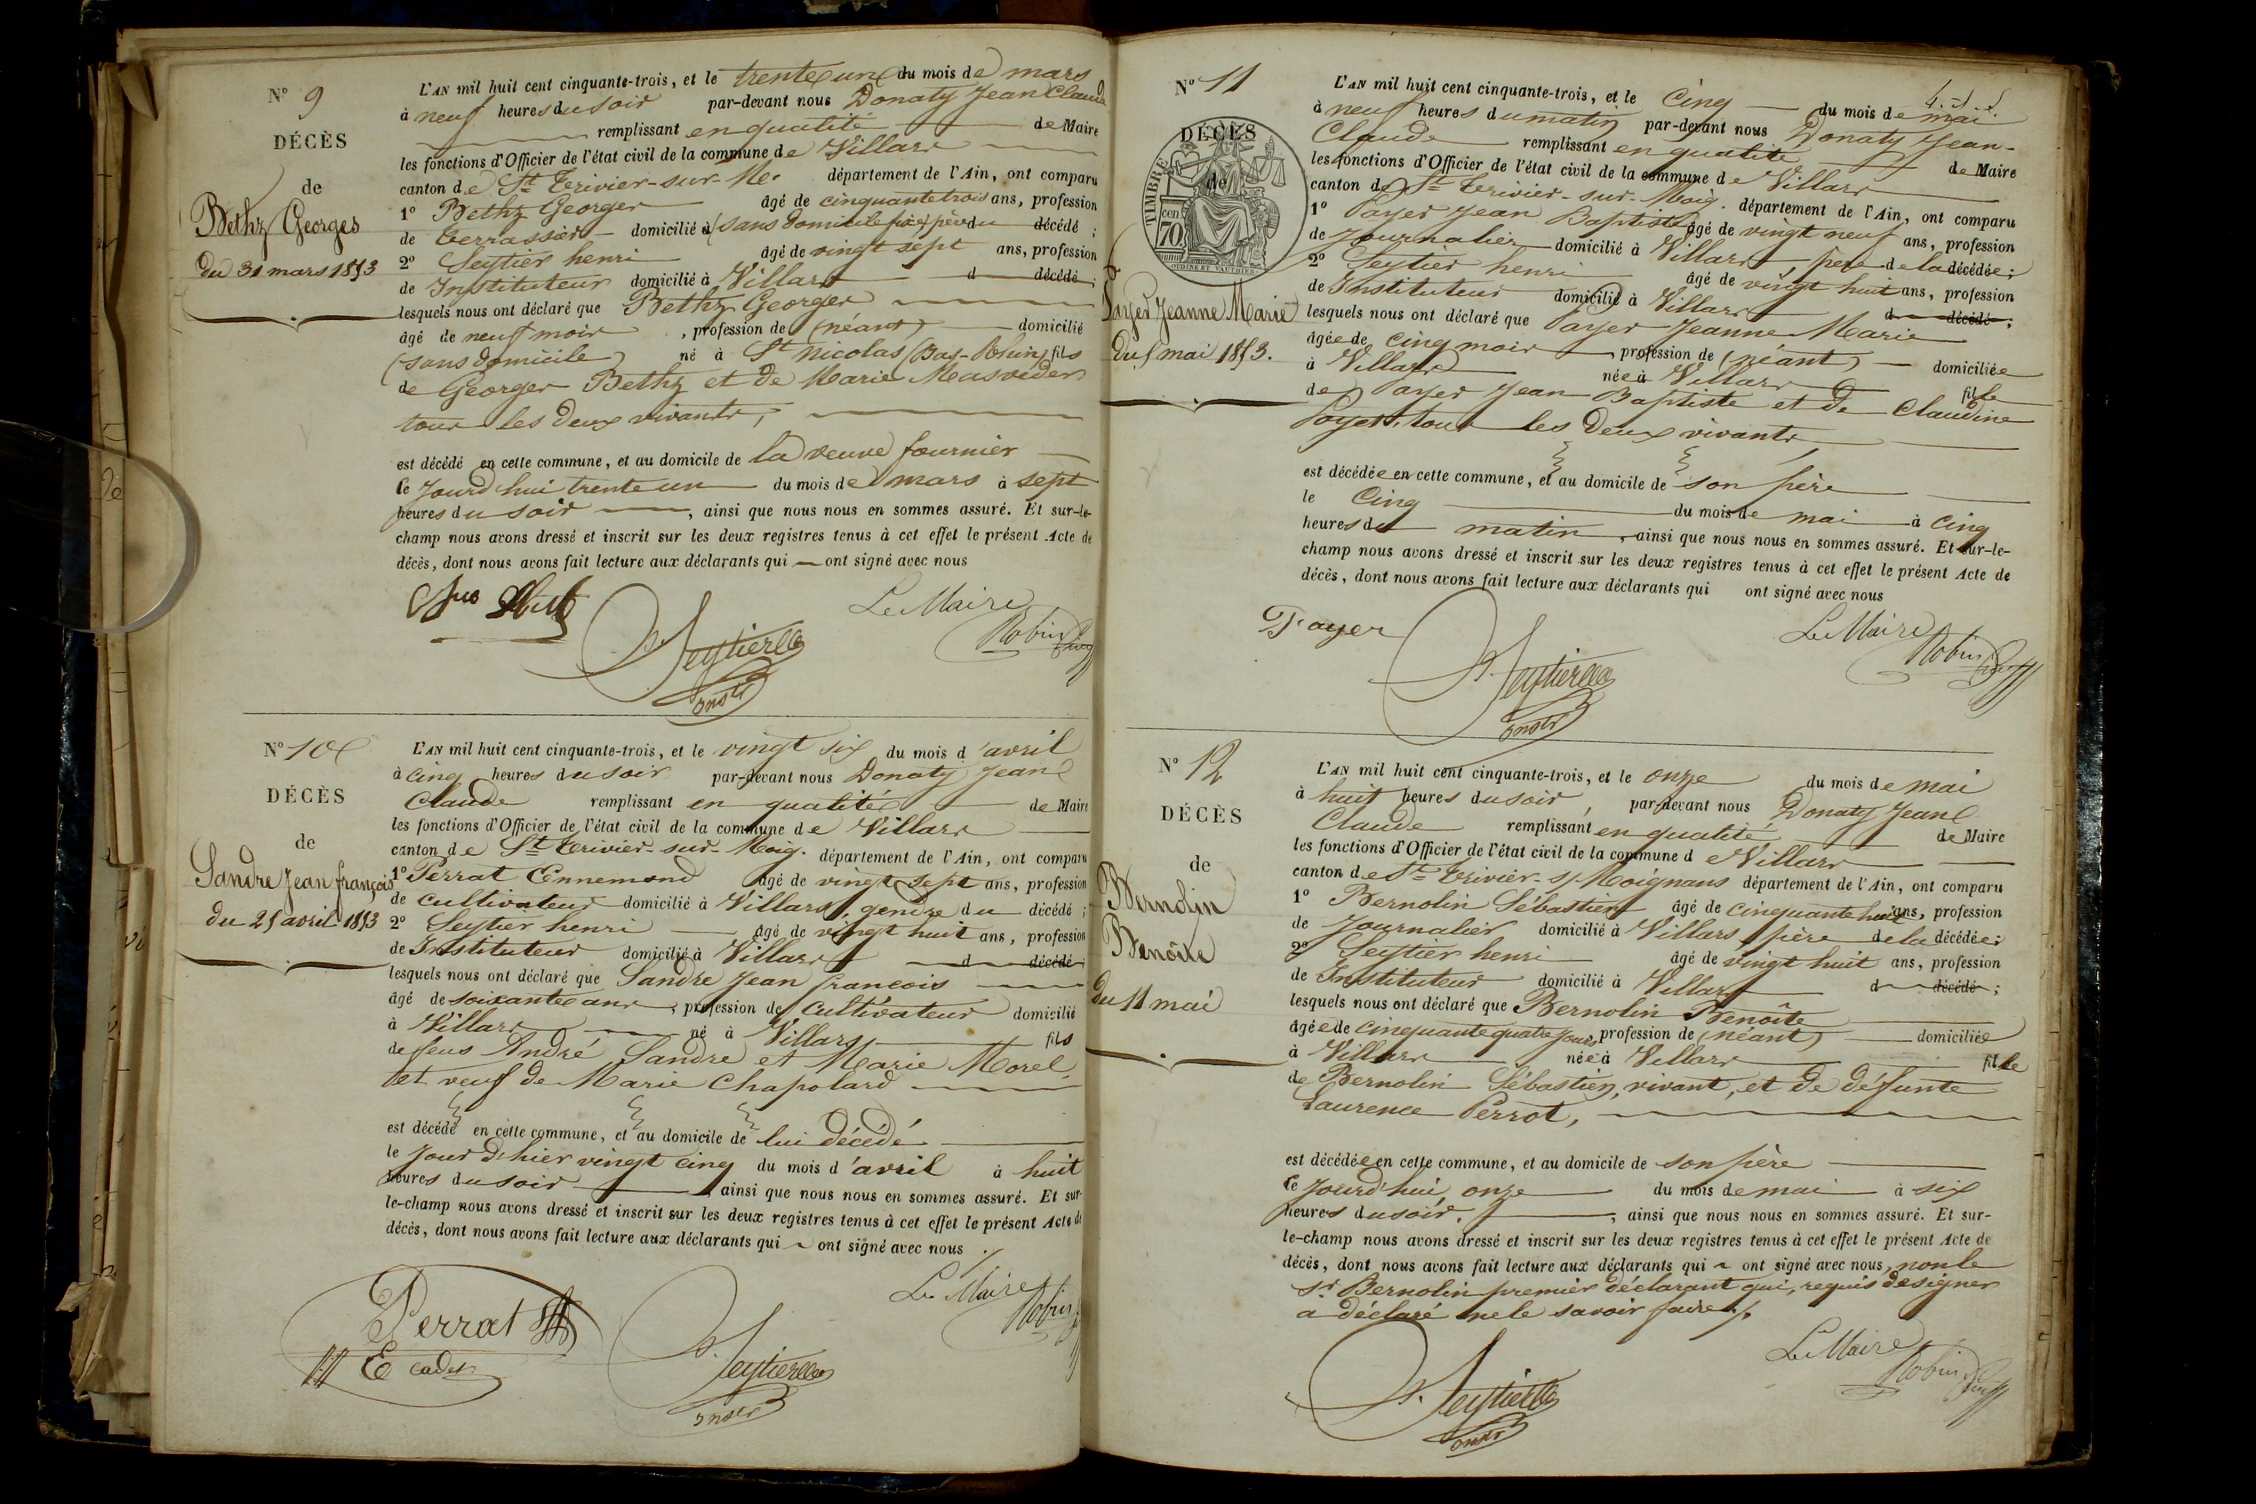 N° 9
DÉCÈS
de
Bethz Georges
du 31 mars 1853
L'AN mil huit cent cinquante-trois, et le trente un du mois de mars
à neuf heures du soir par-devant nous Donaty Jean Claude
remplissant en qualité de Maire
les fonctions d'Officier de l'état civil de la commune de Villars
canton de St Trivier-sur-M. département de l'Ain, ont comparu
1° Bethz Georges âgé de cinquante trois ans, profession
de terrassier domicilié à (sans domicile fixe) père du décédé ;
2° Seytier henri âgé de vingt sept ans, profession
de Instituteur domicilié à Villars d décédé ;
lesquels nous ont déclaré que Bethz Georges
âgé de neuf mois , profession de (néant) domicilié
(sans domicile) né à St Nicolas (Bas-Rhin) fils
de Georges Bethz et de Marie Masveder
tous les deux vivants ;
est décédé en cette commune, et au domicile de la veuve fournier
ce jourd'hui trente un du mois de mars à sept
heures du soir , ainsi que nous nous en sommes assuré. Et sur-le-
champ nous avons dressé et inscrit sur les deux registres tenus à cet effet le présent Acte de
décès, dont nous avons fait lecture aux déclarants qui ont signé avec nous
Le Maire
Seytier
Instr
N° 10
DÉCÈS
de
Sandre Jean françois
du 25 avril 1853
L'AN mil huit cent cinquante-trois, et le vingt six du mois d'avril
à cinq heures du soir par-devant nous Donaty Jean
Claude remplissant en qualité de Maire
les fonctions d'Officier de l'état civil de la commune de Villars
canton de St Trivier-sur-Moig. département de l'Ain, ont comparu
1° Perrat Ennemond âgé de vingt sept ans, profession
de cultivateur domicilié à Villars, gendre du décédé ;
2° Seytier henri âgé de vingt huit ans, profession
de Instituteur domicilié à Villars d décédé ;
lesquels nous ont déclaré que Sandre Jean françois
âgé de soixante ans , profession de cultivateur domicilié
à Villars né à Villars fils
de feus André Sandre et Marie Morel,
et veuf de Marie Chapolard
est décédé en cette commune, et au domicile de lui décédé
le jour d'hier vingt cinq du mois d'avril à huit
heures du soir , ainsi que nous nous en sommes assuré. Et sur-
le-champ nous avons dressé et inscrit sur les deux registres tenus à cet effet le présent Acte de
décès, dont nous avons fait lecture aux déclarants qui ont signé avec nous ./.
Le Maire
Perrat
E cadet
Seytier
Instr
N° 11
DÉCÈS
de
TIMBRE
cen
70
Payer Jeanne Marie
du 5 mai 1853.
L'AN mil huit cent cinquante-trois, et le cinq du mois de mai
à neuf heures du matin par-devant nous Donaty Jean-
Claude remplissant en qualité de Maire
les fonctions d'Officier de l'état civil de la commune de Villars
canton de St Trivier-sur-Moig. département de l'Ain, ont comparu
1° Payer Jean Baptiste âgé de vingt neuf ans, profession
de journalier domicilié à Villars, père de la décédée ;
2° Seytier henri âgé de vingt huit ans, profession
de Instituteur domicilié à Villars d décédé ;
lesquels nous ont déclaré que Payer Jeanne Marie
âgée de cinq mois , profession de (néant) domiciliée
à Villars née à Villars fille
de Payer Jean Baptiste et de Claudine
Poyet, tous les deux vivants
est décédée en cette commune, et au domicile de son père
le cinq du mois de mai à cinq
heures du matin , ainsi que nous nous en sommes assuré. Et sur-le-
champ nous avons dressé et inscrit sur les deux registres tenus à cet effet le présent Acte de
décès, dont nous avons fait lecture aux déclarants qui ont signé avec nous
Payer
Le Maire
Seytier
Instr
N° 12
DÉCÈS
de
Bernolin
Benoîte
du 11 mai
L'AN mil huit cent cinquante-trois, et le onze du mois de mai
à huit heures du soir, par-devant nous Donaty Jean
Claude remplissant en qualité de Maire
les fonctions d'Officier de l'état civil de la commune de Villars
canton de St Trivier-s/-Moignans département de l'Ain, ont comparu
1° Bernolin Sébastien âgé de cinquante huit ans, profession
de journalier domicilié à Villars, père de la décédée ;
2° Seytier henri âgé de vingt huit ans, profession
de Instituteur domicilié à Villars d décédé ;
lesquels nous ont déclaré que Bernolin Benoîte
âgée de cinquante quatre jours, profession de (néant) domiciliée
à Villars née à Villars fille
de Bernolin Sébastien, vivant, et de défunte
Laurence Perrot,
est décédée en cette commune, et au domicile de son père
ce jourd'hui, onze du mois de mai à six
heures du soir, , ainsi que nous nous en sommes assuré. Et sur-
le-champ nous avons dressé et inscrit sur les deux registres tenus à cet effet le présent Acte de
décès, dont nous avons fait lecture aux déclarants qui ont signé avec nous, non le
sr Bernolin premier déclarant qui, requis de signer
a déclaré ne le savoir faire ./.
Le Maire
Seytier
Instr